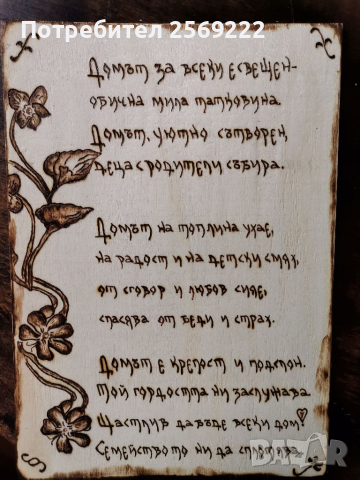 Потребител 2569222
Домът за всеки е свещен-
обична мила татковина.
Домът, уютно сътворен,
деца с родители събира.
Домът на топлина ухае,
на радост и на детски смях,
от сговор и любов сияе,
спасява от беди и страх.
Домът е крепост и подслон.
Той гордостта ни заслужава.
Щастлив да бъде всеки дом!
Семейството ни да сплотява.
BAZAR